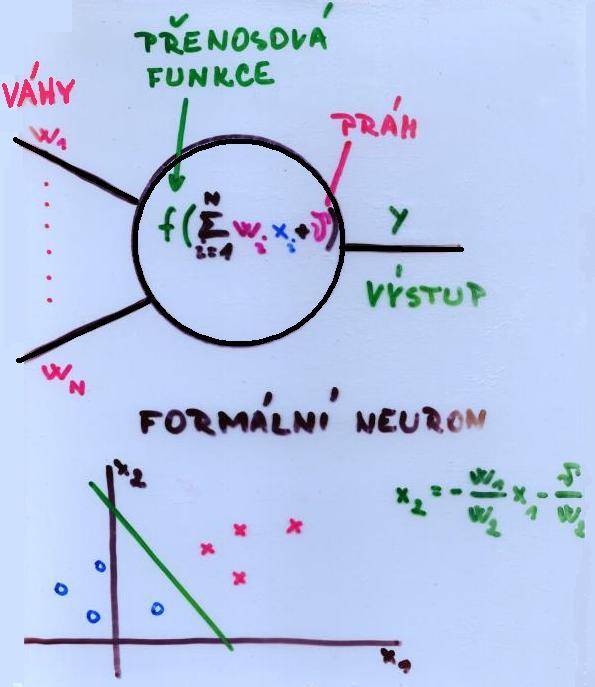 PŘENOSOVÁ
FUNKCE
VÁHY
PRÁH
w₁
f(∑ᵢ₌₁ᴺ wᵢ xᵢ + ϑ)
y
VÝSTUP
w_N
FORMÁLNÍ NEURON
x₂
x₂ = - w₁/w₂ x₁ - ϑ/w₂
x₁